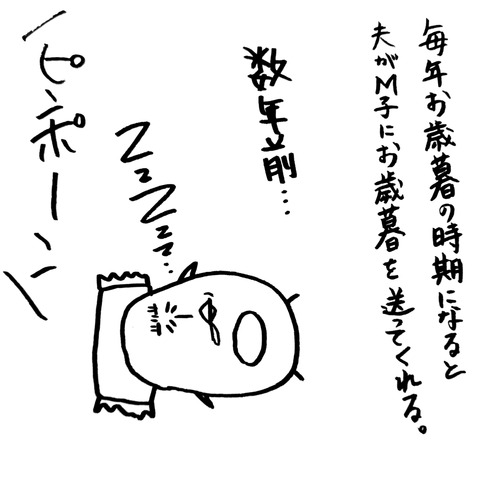 毎年お歳暮の時期になると
夫がM子にお歳暮を送ってくれる。
数年前…
ZzZzz…
ピンポーン